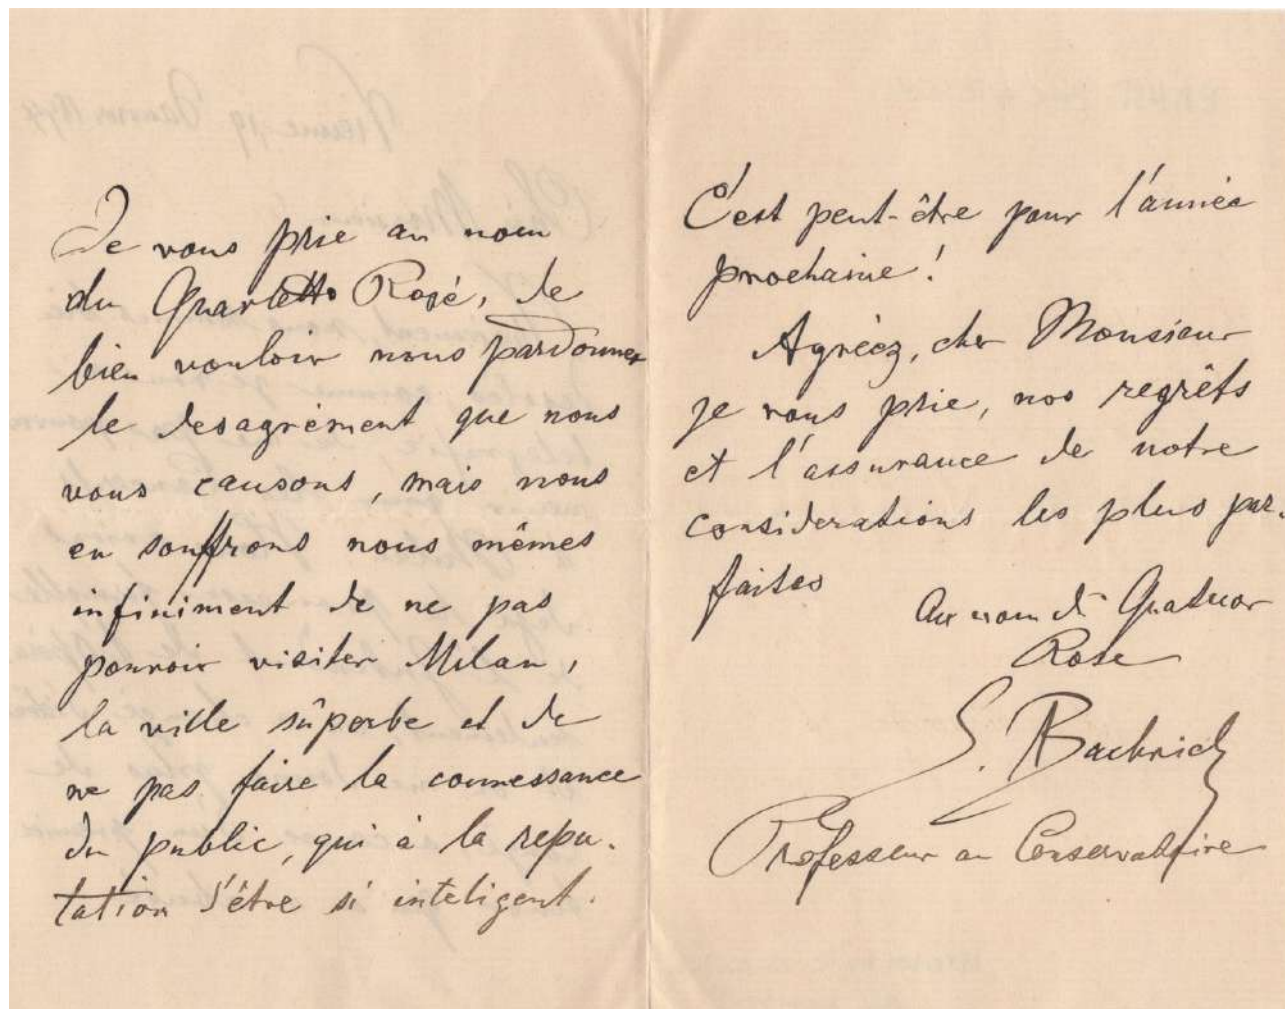 Je vous prie au nom
du Quartetto Rosé, de
bien vouloir nous pardonner
le desagrément que nous
vous causons, mais nous
en souffrons nous mêmes
infiniment de ne pas
pouvoir visiter Milan,
la ville sûperbe et de
ne pas faire la connessance
du public, qui à la repu-
tation d'être si inteligent.
C'est peut-être pour l'année
prochaine!
Agréez, cher Monsieur
je vous prie, nos regrêts
et l'assurance de notre
considerations les plus par-
faites
Au nom d Quatuor
Rose
S. Bachrich
Professeur au Conservatoire